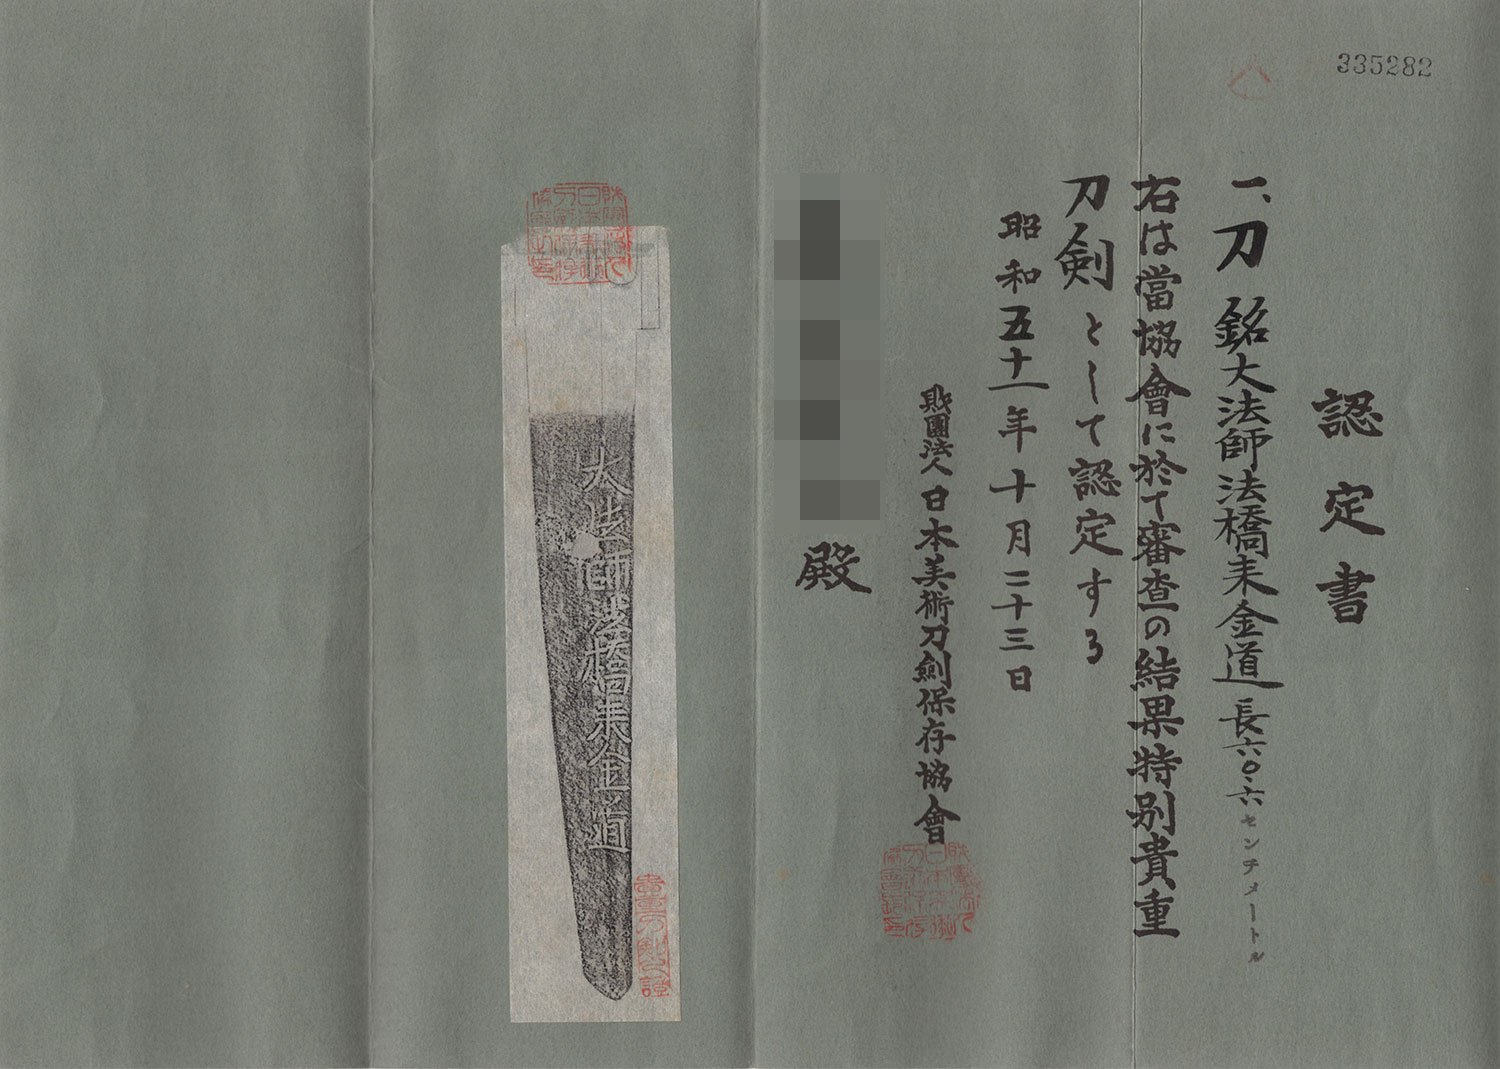 335282
認定書
一、刀 銘大法師法橋来金道 長六〇、六センチメートル
右は當協會に於て審査の結果特別貴重
刀剣として認定する
昭和五十一年十月二十三日
財團法人日本美術刀劍保存協會
殿
大法師法橋来金道